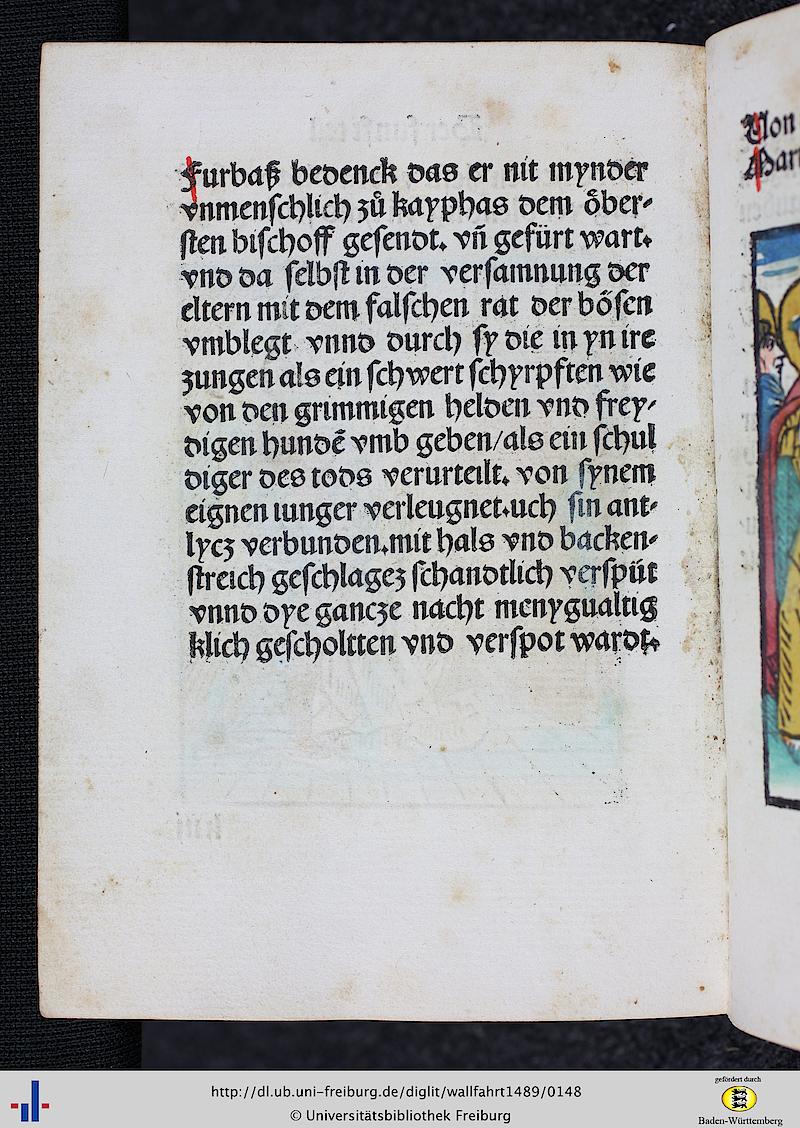 Furbaß bedenck das er nit mynder
vnmenſchlich zů kayphas dem öber⸗
ſten biſchoff geſendt. vñ gefürt wart.
vnd da ſelbſt in der verſamnung der
eltern mit dem falſchen rat der böſen
vmblegt vnnd durch ſy die in yn ire
zungen als ein ſchwert ſchyrpften wie
von den grimmigen helden vnd frey⸗
digen hundē vmb geben/als ein ſchul
diger des tods verurteilt. von ſynem
eignen iunger verleugnet.uch ſin ant⸗
lycz verbunden.mit hals vnd backen⸗
ſtreich geſchlagez ſchandtlich verſpüt
vnnd dye gancze nacht menygualtig
klich geſcholtten vnd verſpot wardt.
Von
Mar
http://dl.ub.uni-freiburg.de/diglit/wallfahrt1489/0148
© Universitätsbibliothek Freiburg
gefördert durch
Baden-Württemberg